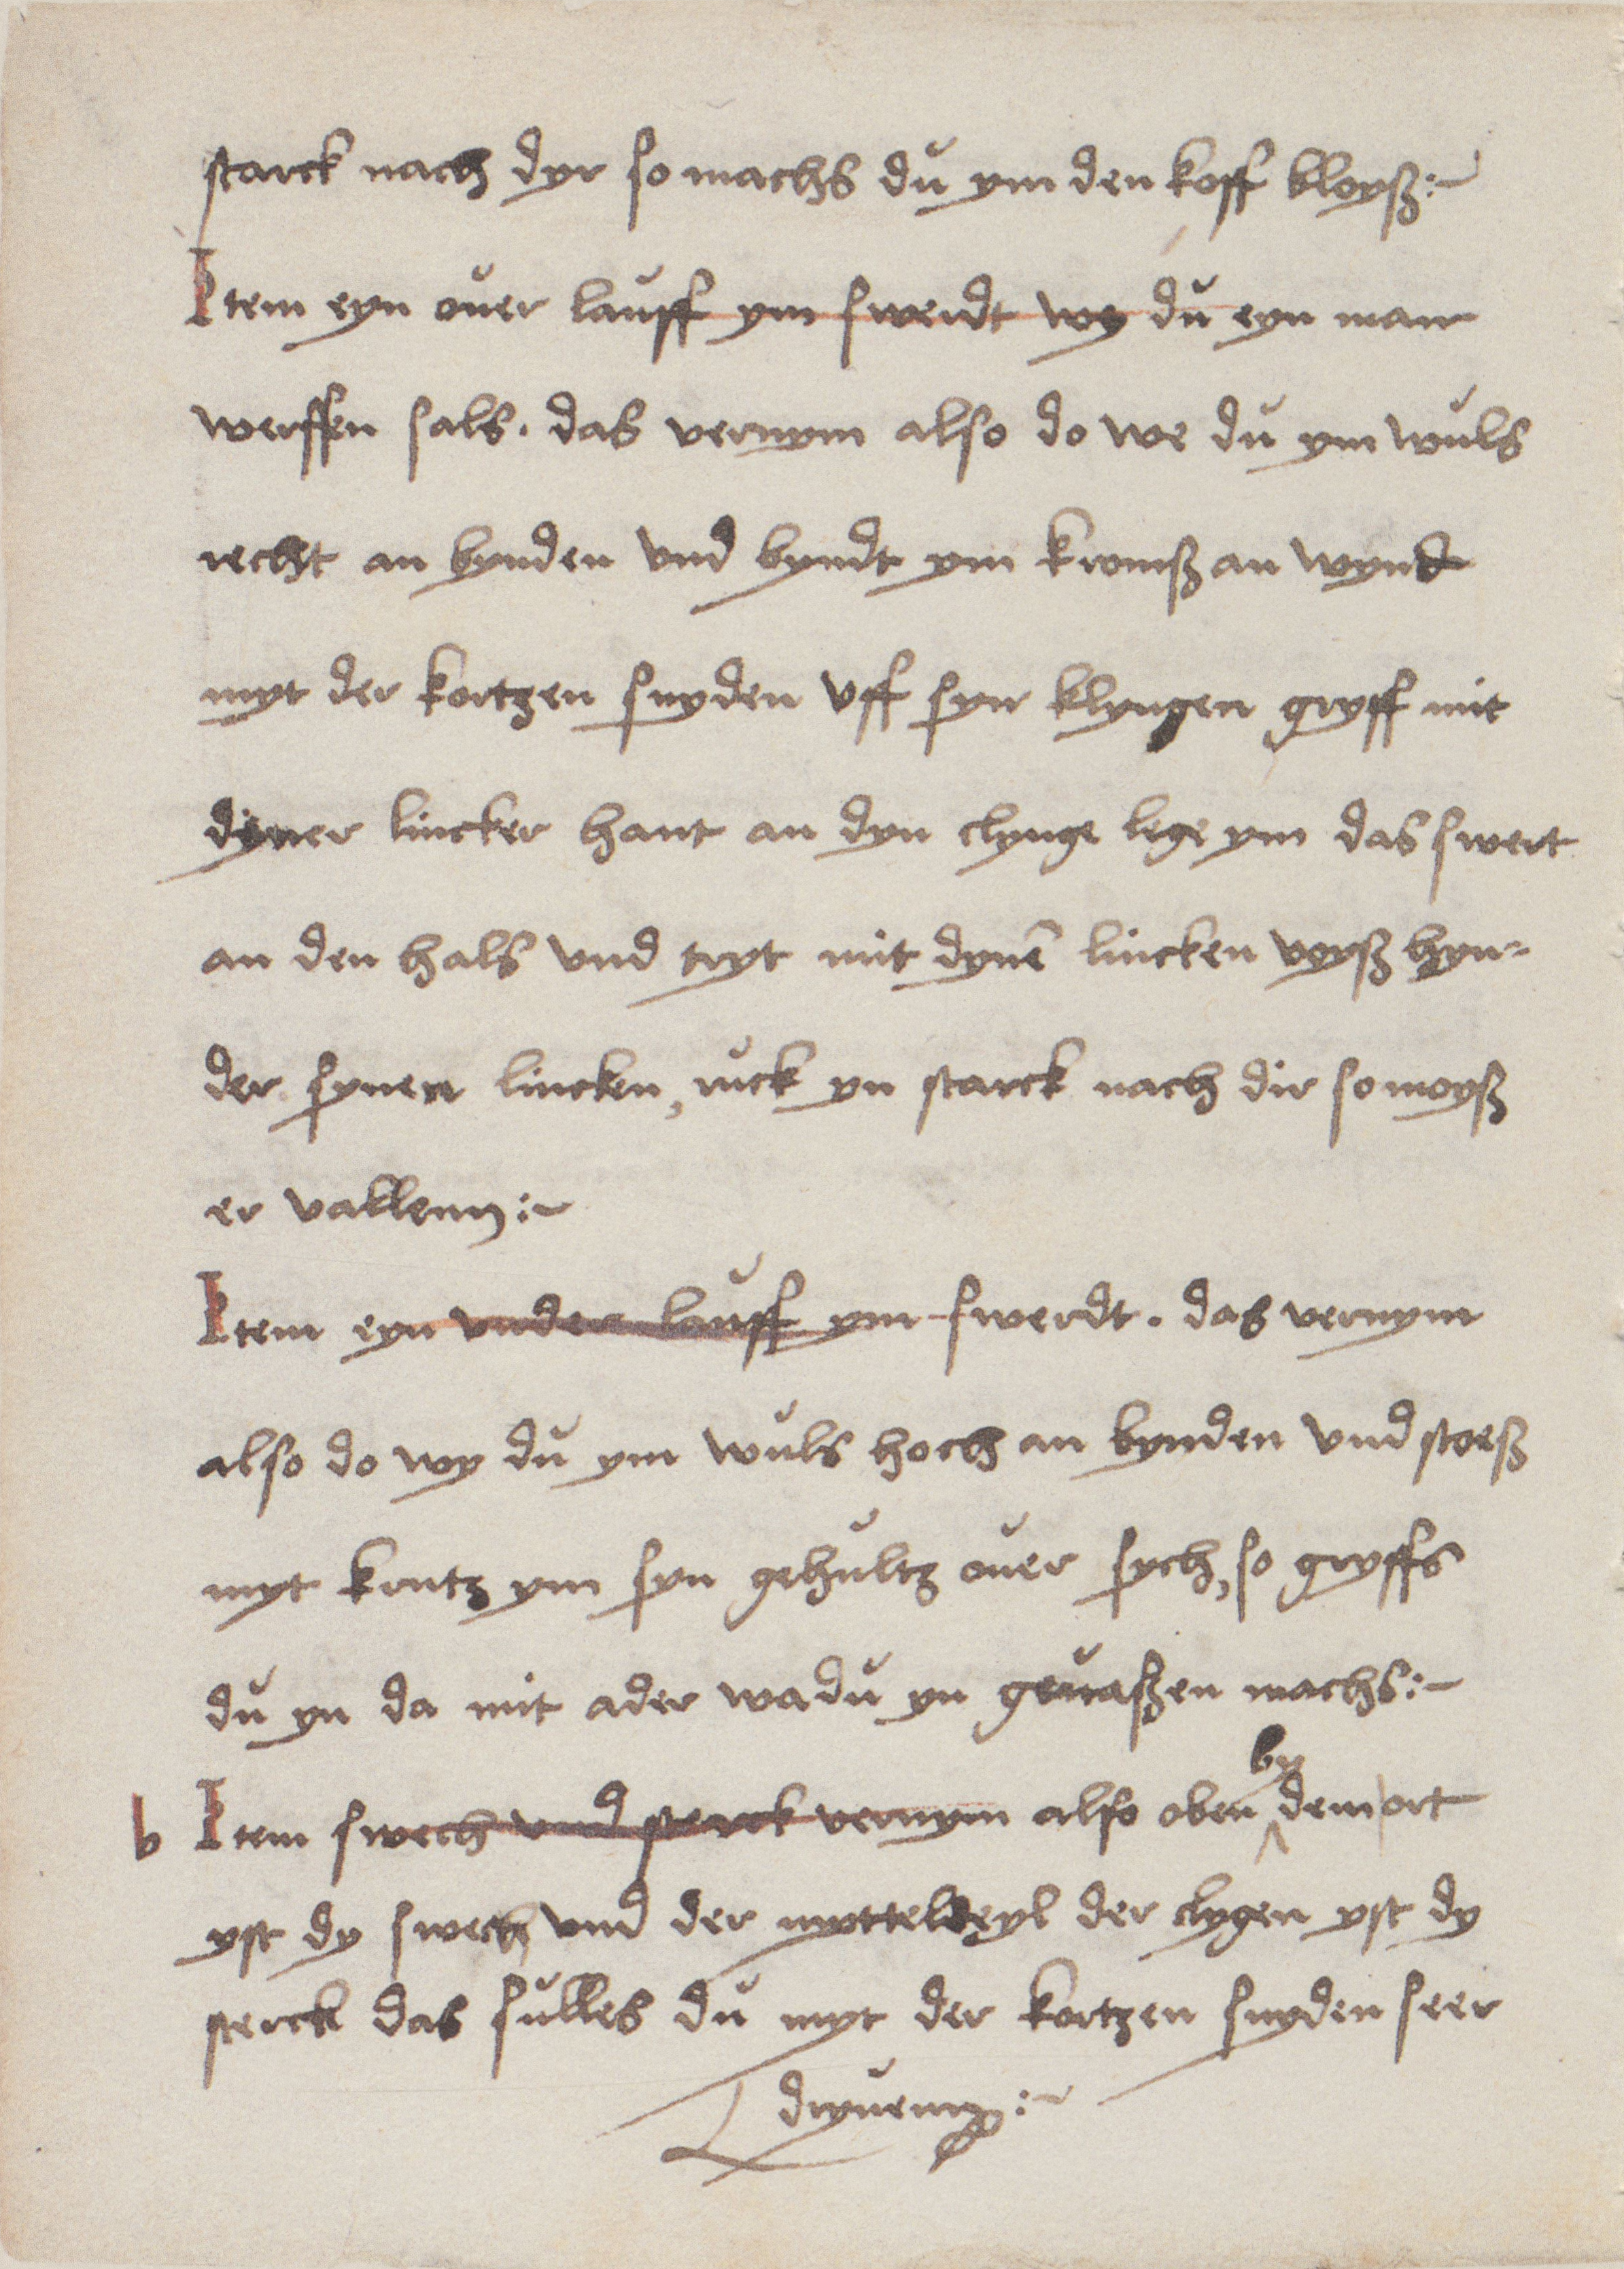 starck nach dyr so machs dů ym den koff bloyß :~
Item eyn ouer lauff ym swerdt wy dů eyn man
werffen sals · das vernym also do we dů ym wůls
recht an bynden vnd byndt ym kromß an wynd
myt der kortzen snyden vff syn klyngen gryff mit
dyner lincker hant an dyn clynge lege ym das swert
an den hals vnd tryt mit dynē lincken voyß hyn=
der synen lincken, růck yn starck nach dir so moyß
er vallenn :~
Item eyn vnder laůff ym swerdt . das vernym
also do wy dů ym wůls hoch an bynden vnd stoeß
myt krutz ym syn gehůltz oůer sych, so gryffs
dů yn da mit ader wa dů yn geůaßen machs :~
b Item swech vnd sterck vernym also oben by dem ort
yst dy swech vnd der mytteldeyl der clygen yst dy
sterck das sůlles dů myt der kortzen snyden seer
dryůenn :~